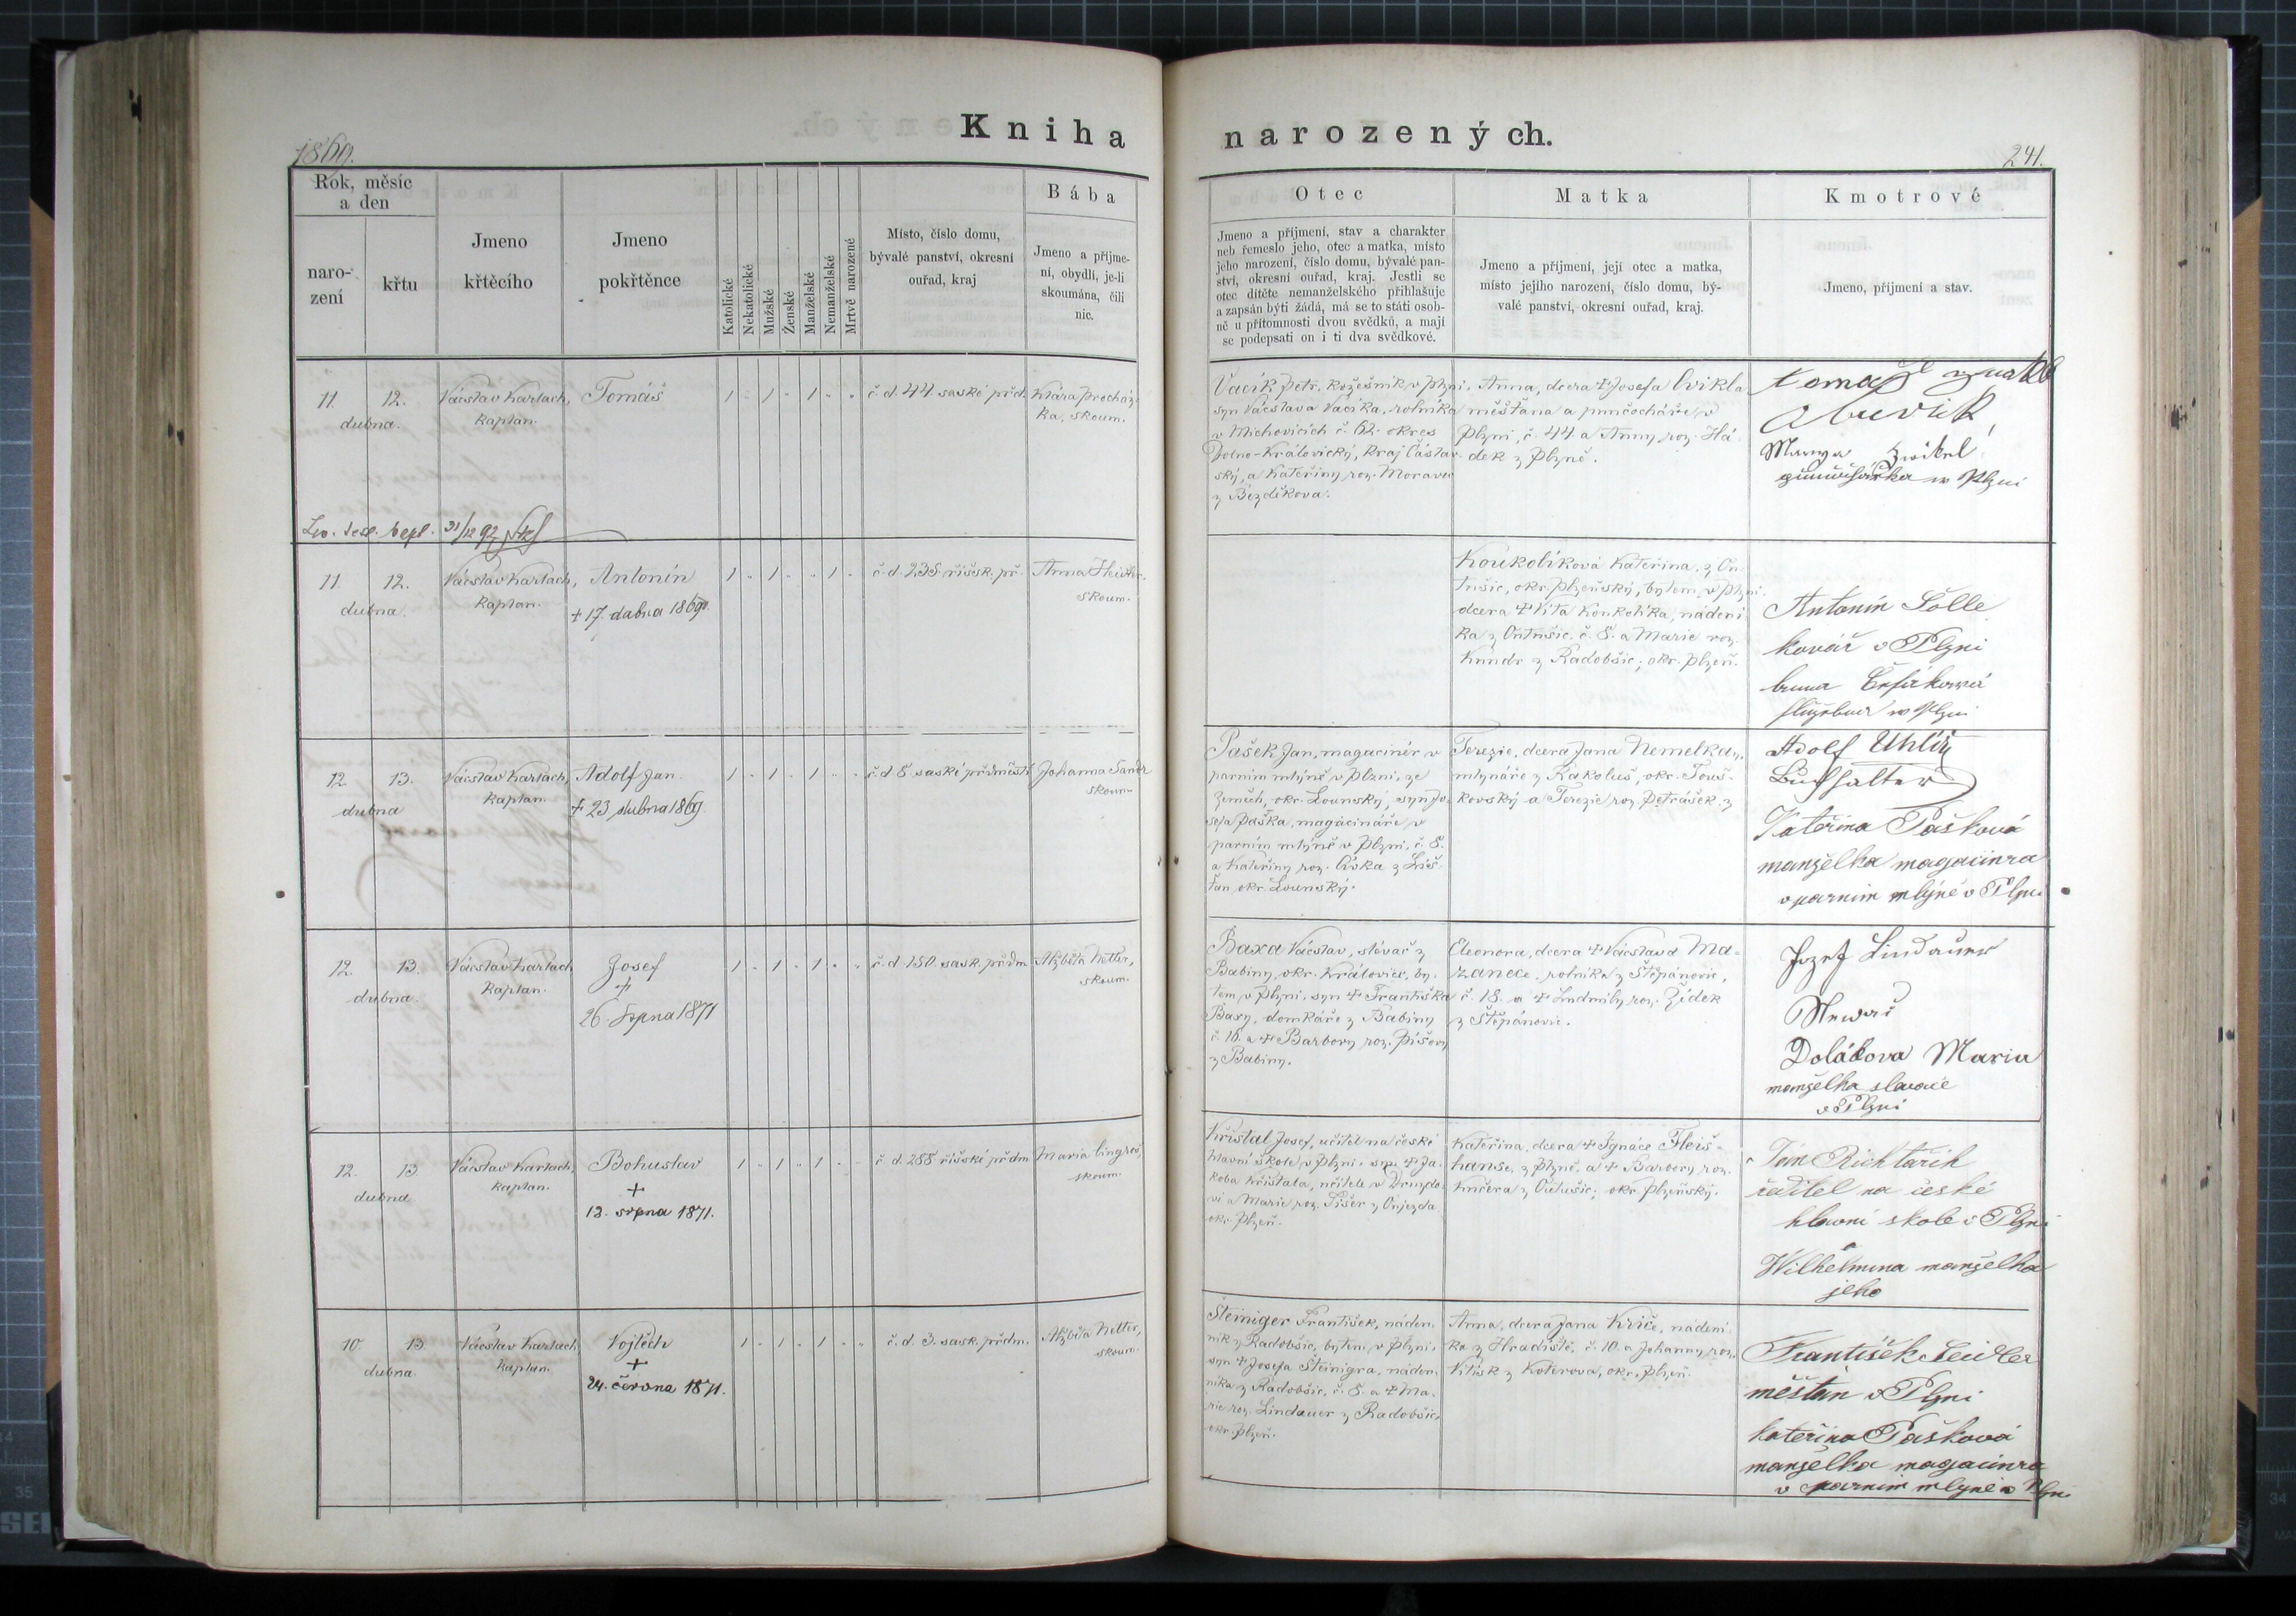 Kniha narozených.
1869.
241.
Rok, měsíc
a den
naro-
zení
křtu
Jmeno
křtěcího
Jmeno
pokřtěnce
Katolické
Nekatolické
Mužské
Ženské
Manželské
Nemanželské
Mrtvě narozené
Místo, číslo domu,
bývalé panství, okresní
ouřad, kraj
Bába
Jmeno a příjme-
ní, obydlí, je-li
skoumána, čili
nic.
Otec
Jmeno a příjmení, stav a charakter
neb řemeslo jeho, otec a matka, místo
jeho narození, číslo domu, bývalé pan-
ství, okresní ouřad, kraj. Jestli se
otec dítěte nemanželského přihlašuje
a zapsán býti žádá, má se to státi osob-
ně u přítomnosti dvou svědků, a mají
se podepsati on i ti dva svědkové.
Matka
Jmeno a příjmení, její otec a matka,
místo jejího narození, číslo domu, bý-
valé panství, okresní ouřad, kraj.
Kmotrové
Jmeno, přijmení a stav.
11. 12.
dubna.
Václav Karlach,
kaplan.
Tomáš
1 " 1 " 1 " "
č. d. 44. saské přd.
Klára Procház-
ka, skoum.
Vacík Petr, kožešník v Plzni,
syn Václava Vacíka, rolníka
v Michovicích č. 62. okres
Dolno-Královický, kraj Čáslav-
ský, a Kateřiny roz. Morava
z Bezděkova.
Anna, dcera † Josefa Cvikla
měšťana a punčocháře v
Plzni, č. 44. a Anny roz. Há-
dek z Plzně.
Marya Zwikel
w Plzni
31/12 92
11. 12.
dubna.
Václav Karlach,
kaplan.
Antonín
† 17. dubna 1869.
1 " 1 " " 1 "
č. d. 235. říšsk. př.
Anna
skoum.
Koukolíková Kateřina, z
okr. Plzeňský, bytem v Plzni,
dcera † Víta Koukolíka, nádení-
ka z č. 8. a Marie roz.
Kundr z Radobšic, okr. Plzeň.
Antonín Sólle
kovář v Plzni
w Plzni
12. 13.
dubna
Václav Karlach,
kaplan.
Adolf Jan.
† 23 dubna 1869.
1 " 1 " 1 " "
č. d. 8 saské předměstí
Johanna
skoum.
Pašek Jan, magacinér v
parním mlýně v Plzni, ze
Zeměch, okr. Lounský, syn Jo-
sefa Paška, magacináře v
parním mlýně v Plzni, č. 8.
a Kateřiny roz. Liška z Liš-
ťan okr. Lounský.
Terezie, dcera Jana Nemelka,
mlynáře z Kakoluš, okr. Touš-
kovský a Terezie roz. Petrášek z
Adolf Uhlíř
Buchhalter
Kateřina Pašková
manželka magacinra
v parním mlýně v Plzni
12. 13.
dubna.
Václav Karlach
kaplan.
Josef
†
26. srpna 1871
1 " 1 " 1 " "
č. d. 150. sask. předm
Alžběta Netter,
skoum.
Baxa Václav, slévač z
Babiny, okr. Kralovice, by-
tem v Plzni, syn † Františka
Baxy, domkáře z Babiny
č. 16. a † Barbory roz. Píšovy
z Babiny.
Eleonora, dcera † Václava Ma-
zance, rolníka z Štěpánovic,
č. 18. a † Ludmily roz. Židek
z Štěpánovic.
Jozef Lindauer
Dolákova Maria
manželka slevače
v Plzni
12. 13.
dubna
Václav Karlach,
kaplan.
Bohuslav
†
12. srpna 1871.
1 " 1 " 1 " "
č. d. 288 říšské předm
Maria Lingroš,
skoum.
Křišťal Josef, učitel na české
hlavní škole v Plzni, syn † Ja-
koba Křišťala, učitele v
a Marie roz. Fišer z Oujezda
okr. Plzeň.
Kateřina, dcera † Ignáce Fleiš-
hanse, z Plzně, a † Barbory roz.
Kučera z okr. Plzeňský.
Jan Richtařík
ředitel na české
hlavní škole v Plzni
Wilhelmina manželka
jeho
10. 13.
dubna.
Václav Karlach,
kaplan.
Vojtěch
†
24. června 1871.
1 " 1 " 1 " "
č. d. 3. sask. předm.
Alžběta Netter,
skoum.
Šteiniger František, náden-
ník z Radobšic, bytem v Plzni,
syn † Josefa Šteinigra, náden-
níka z Radobšic, č. 8. a † Ma-
rie roz. Lindauer z Radobšic,
okr. Plzeň.
Anna, dcera Jana Kriče, nádení-
ka z Hradiště, č. 10. a Johanny roz.
z Koterova, okr. Plzeň.
František Seidler
měšťan v Plzni
Kateřina Pašková
manželka magacinra
v parním mlýně v Plzni